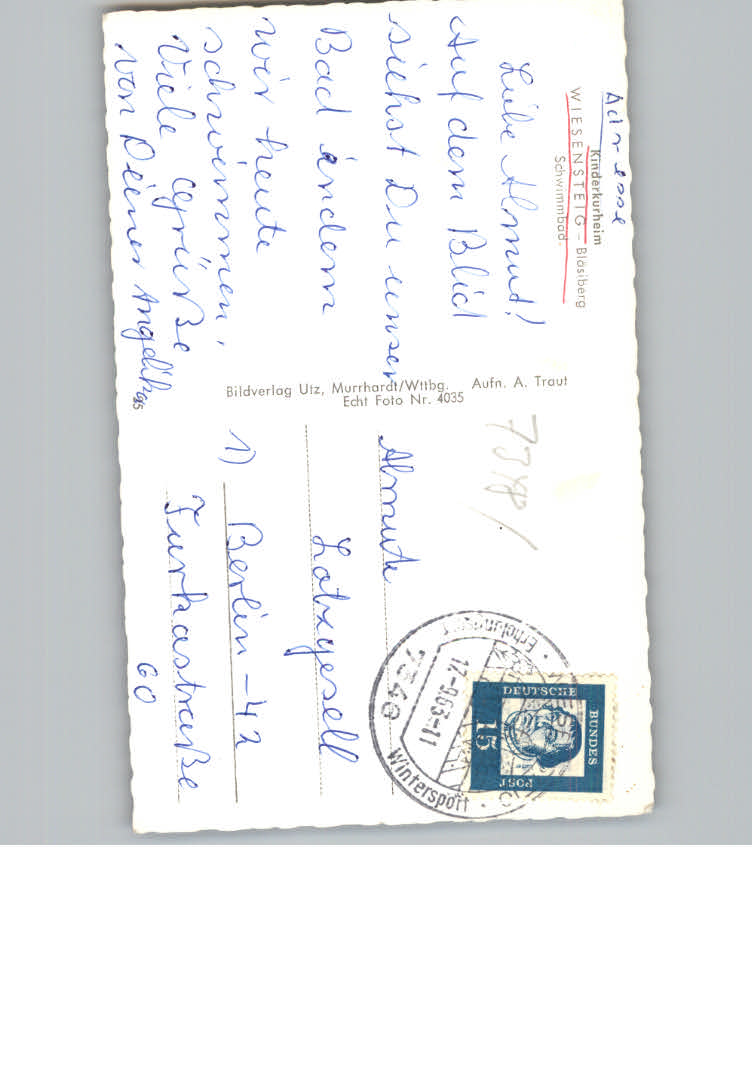 Adresse
Kinderkurheim
WIESENSTEIG – Bläsiberg
Schwimmbad
Liebe Almut!
Auf dem Blid
siehst Du unser
Bad indem
wir heute
schwimmen,
Viele Grüße
von Deiner Angelika
Bildverlag Utz, Murrhardt/Wttbg. Aufn. A. Traut
Echt Foto Nr. 4035
Almute
Lotzgesell
1) Berlin – 42
Furkastraße
60
7346
17.-9.63.-11
Wintersport
Erholungs
DEUTSCHE
BUNDES
POST
15